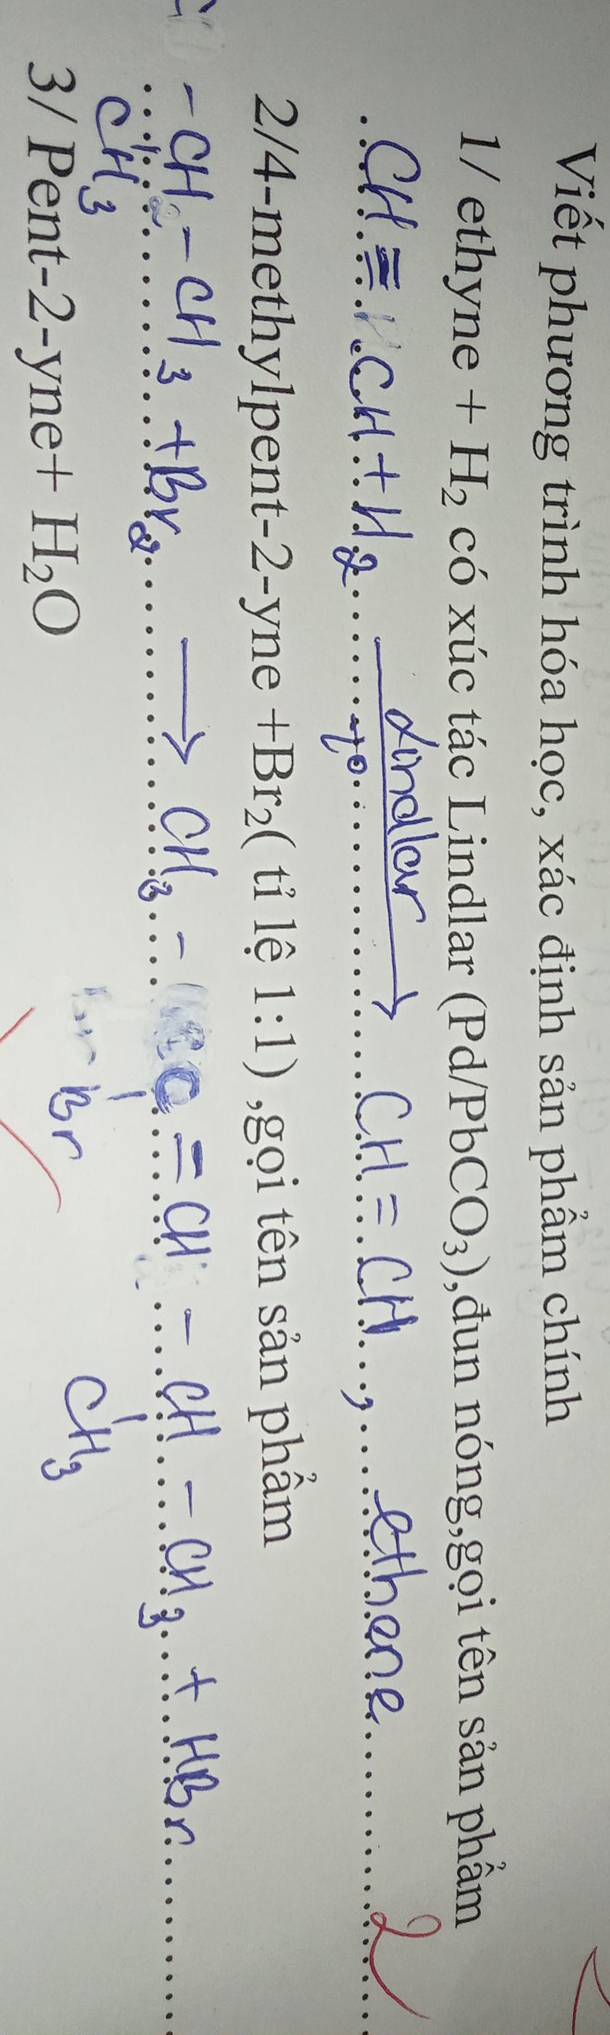 Viết phương trình hóa học, xác định sản phẩm chính
1/ ethyne + H₂ có xúc tác Lindlar (Pd/PbCO₃),đun nóng,gọi tên sản phẩm
CH ≡ CH + H₂ Lindlar t° → CH = CH , ethene
2
2/4-methylpent-2-yne +Br₂( tỉ lệ 1:1) ,gọi tên sản phẩm
- CH - CH₃ + Br₂ → CH₃ - C = CH - CH - CH₃ + HBr
CH₃ Br CH₃
3/ Pent-2-yne+ H₂O